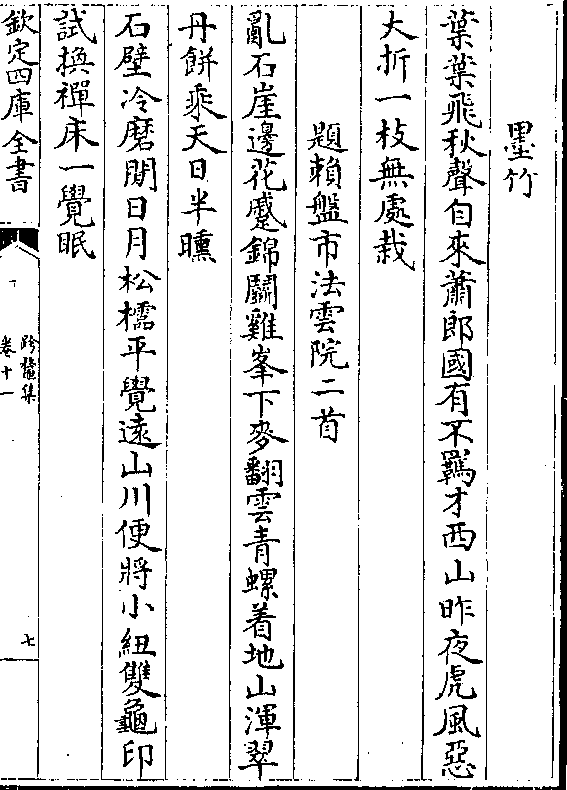 墨竹
葉葉飛秋聲自來蕭郎國有不羈才西山昨夜虎風惡
大折一枝無處栽
題賴盤市法雲院二首
亂石崖邊花蹙錦鬭雞峯下麥翻雲青螺着地山渾翠
丹餅乘天日半曛
石壁冷磨閒日月松檽平覺遠山川便將小紐雙龜印
試換禪床一覺眠
欽定四庫全書
跨鼇集
卷十一
七